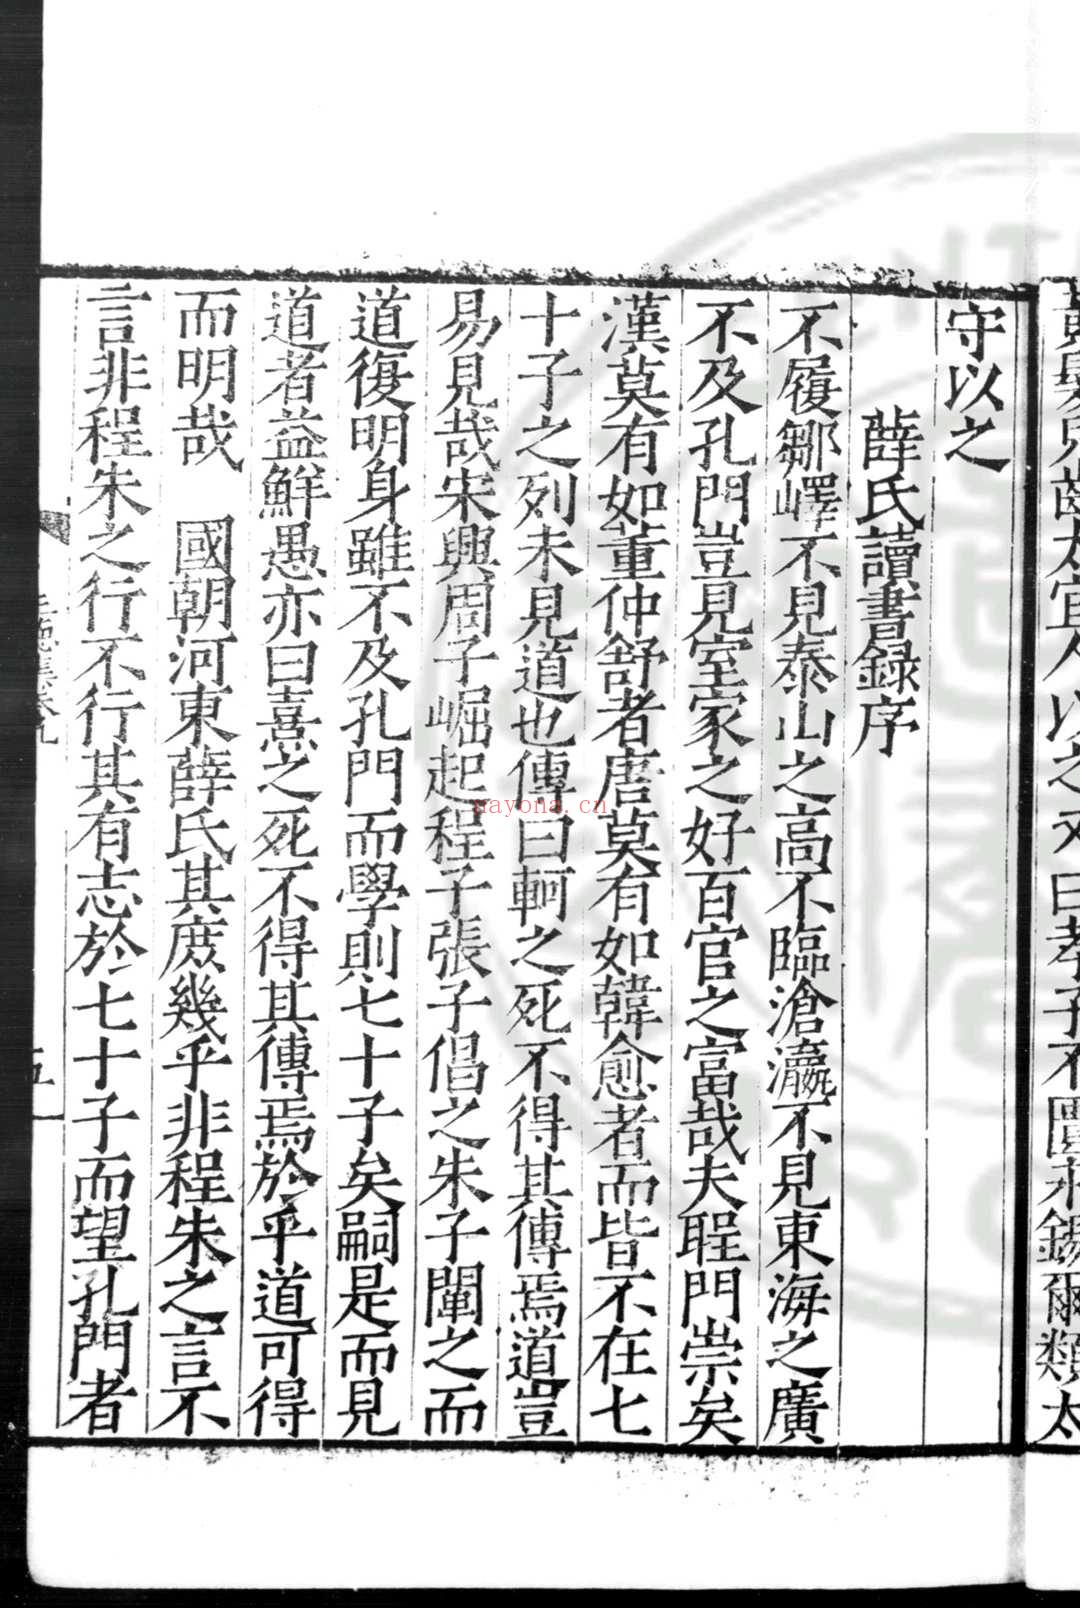 以之文曰孝子不匱永錫爾類太
守以之
薛氏讀書錄序
不履鄒嶧不見泰山之高不臨滄瀛不見東海之廣
不及孔門豈見室家之好百官之富哉夫聖門崇矣
漢莫有如董仲舒者唐莫有如韓愈者而皆不在七
十子之列未見道也傳曰軻之死不得其傳焉道豈
易見哉宋興周子崛起程子張子倡之朱子闡之而
道復明身雖不及孔門而學則七十子矣嗣是而見
道者益鮮愚亦曰熹之死不得其傳焉於乎道可得
而明哉 國朝河東薛氏其庶幾乎非程朱之言不
言非程朱之行不行其有志於七十子而望孔門者
nayona.cn